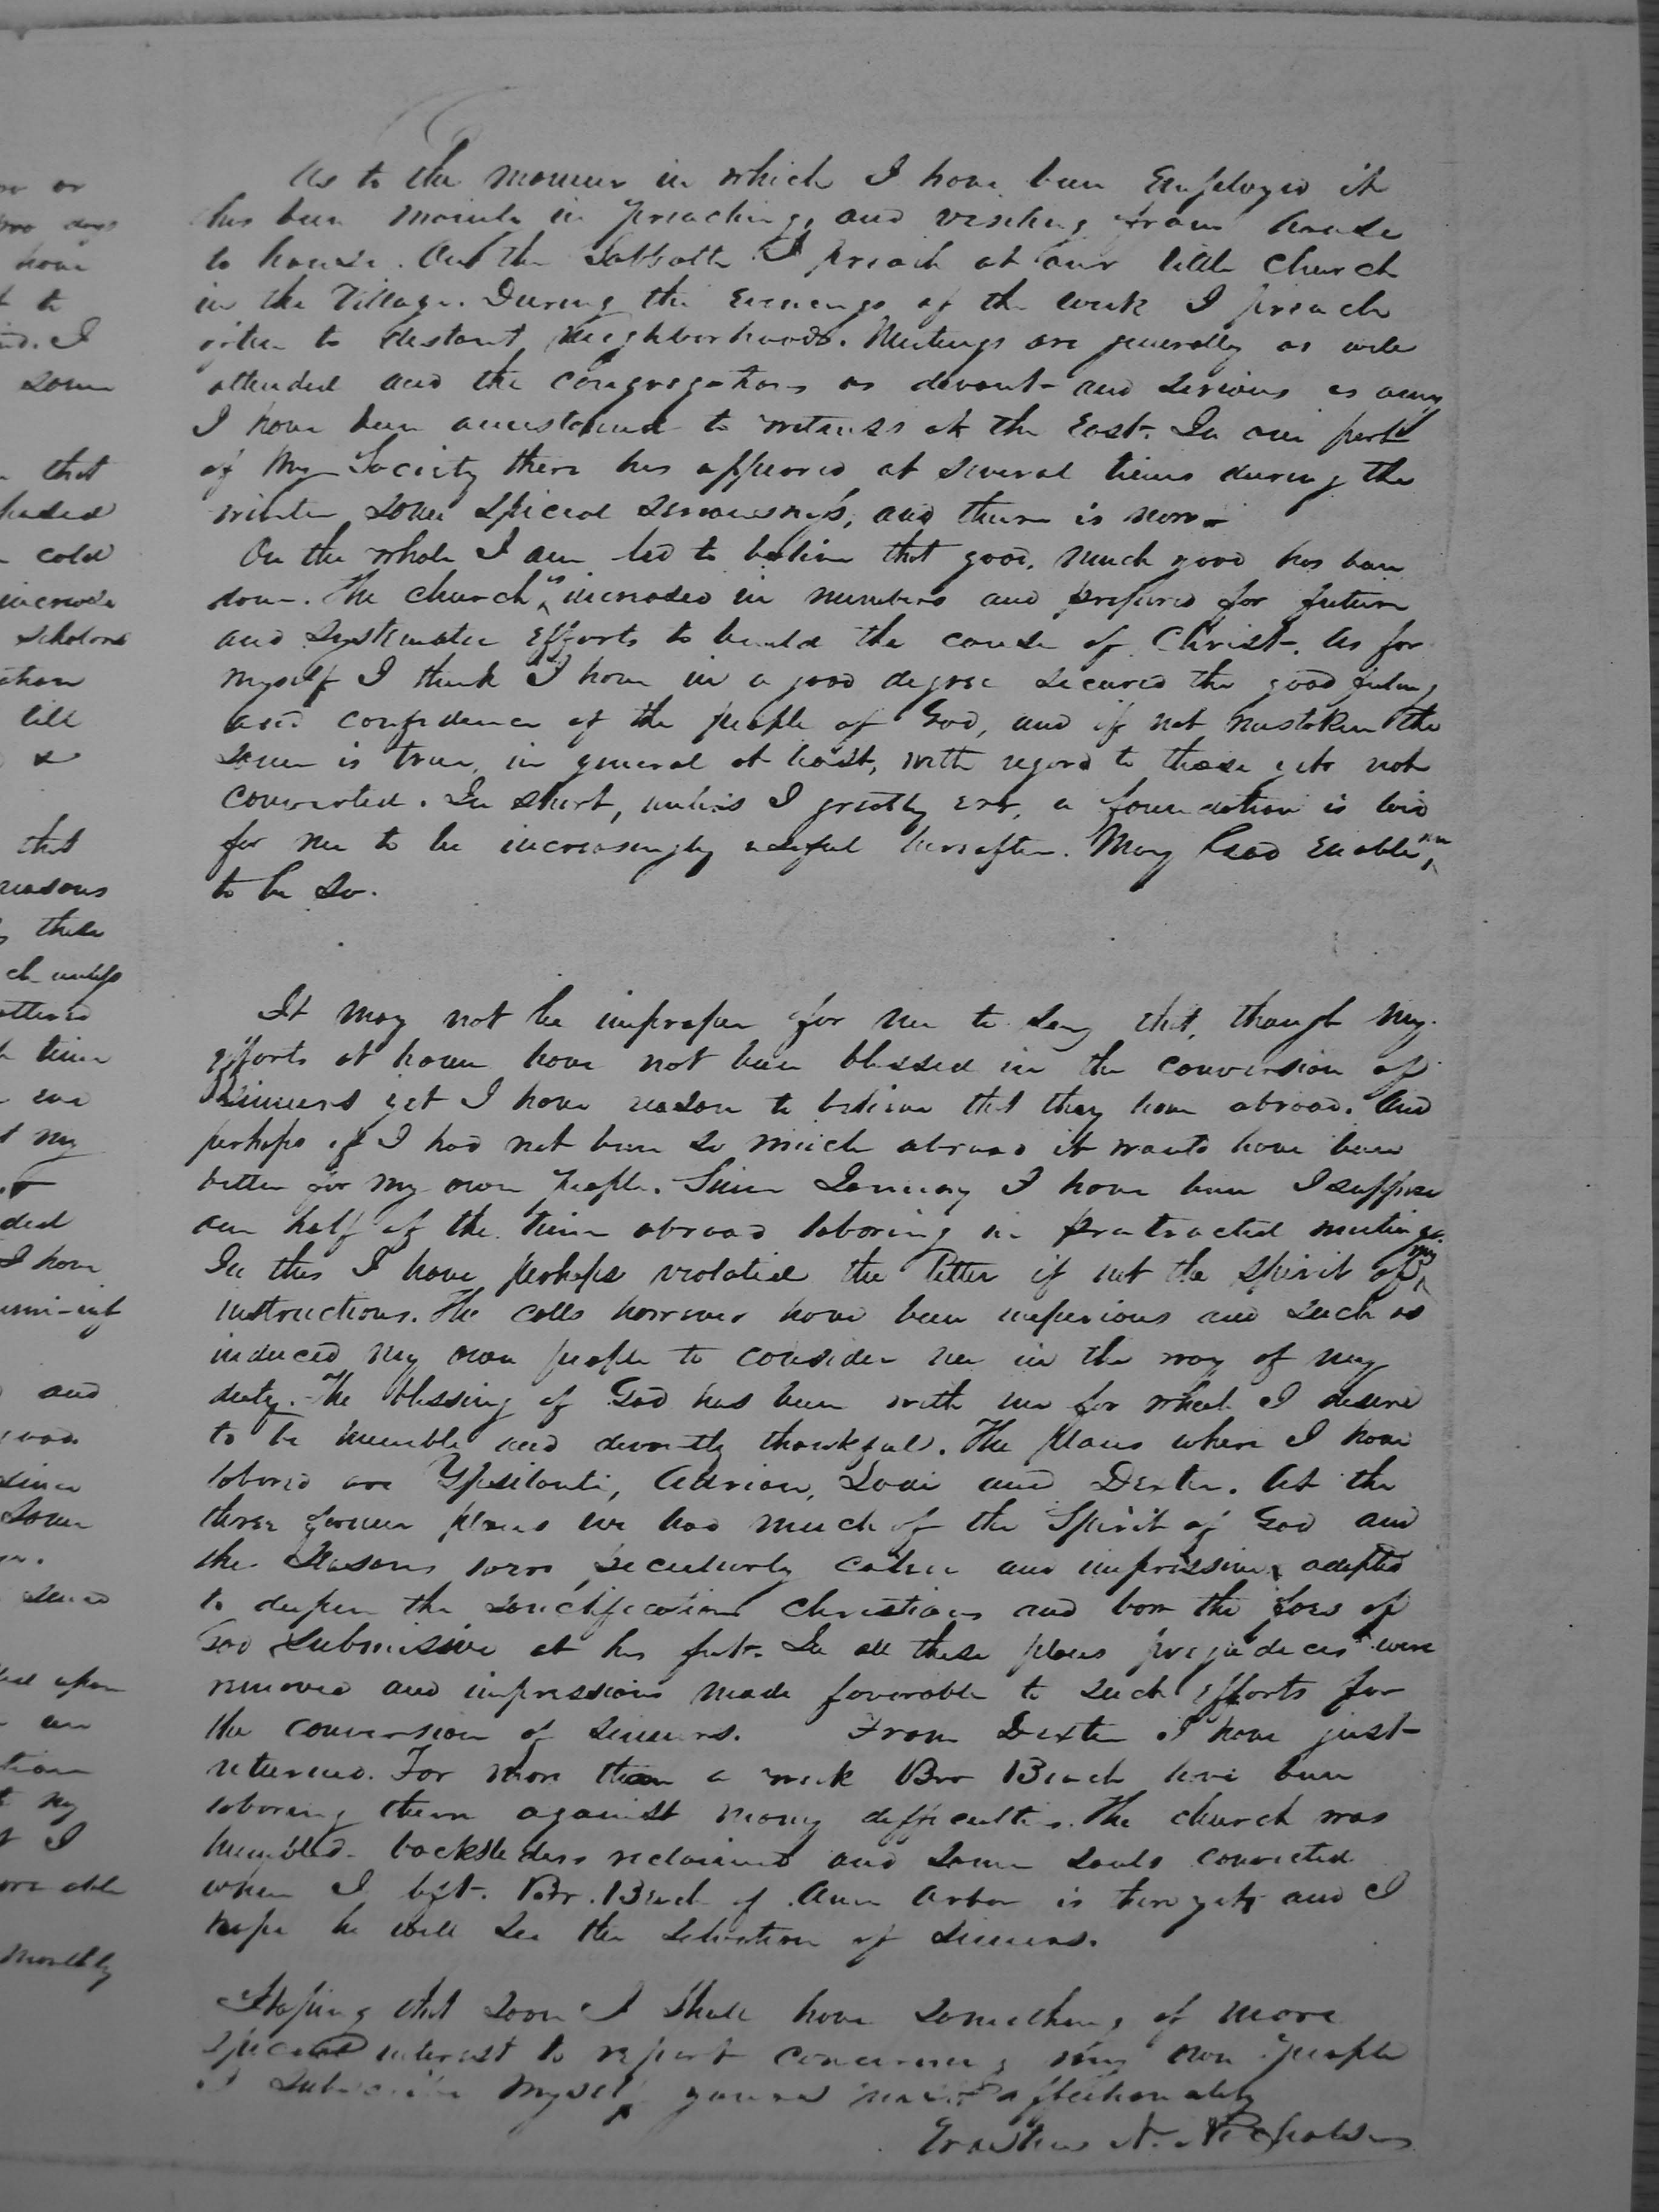 As to the manner in which I have been Employed it
has been mainly in preaching, and visiting from house
to house. On the Sabbath I preach at our little Church
in the Village. During the Evenings of the week I preach
often to distant neighborhoods. Meetings are generally as well
attended and the congregations as devout and serious as any
I have been accustomed to witness at the East. In one part
of My Society there has appeared at several times during the
winter some special seriousness, and there is now
On the whole I am led to believe that good, much good has been
done. The church is increased in numbers and prepared for future
and systematic Efforts to build the cause of Christ. As for
myself I think I have in a good degree secured the good feeling
and confidence of the people of God, and if not mistaken the
same is true, in general at least, with regard to those yet not
converted. In short, unless I greatly err, a foundation is laid
for me to be increasingly useful hereafter. May God Enable me
to be so.
It may not be improper for me to say that, though my
efforts at home have not been blessed in the conversion of
Sinners yet I have reason to believe that they have abroad. And
perhaps if I had not been so much abroad it would have been
better for my own people. Since January I have been I suppose
one half of the time abroad laboring in protracted meetings.
In this I have perhaps violated the letter if not the spirit of my
instructions. The calls however have been imperious and such as
induced my own people to consider me in the way of my
duty. The blessing of God has been with me for which I desire
to be humble and devoutly thankful. The places where I have
labored are Ypsilanti, Adrian, Lodi and Dexter. At the
three former places we had much of the Spirit of God and
the seasons were peculiarly calm and impressive, adapted
to deepen the sanctification Christians and bow the foes of
God submissive at his feet. In all these places prejudices were
removed and impressions made favorable to such Efforts for
the conversion of sinners. From Dexter I have just
returned. For more than a week Bro Beach have been
laboring there against many difficulties. The church was
humbled backsliders reclaimed and some souls convicted
when I left. Br. Beach of Ann Arbor is there yet and I
hope he will see the salvation of sinners.
Hoping that soon I shall have something of more
special interest to report concerning my own people
I subscribe myself yours most affectionately
Erastus N. Nichols